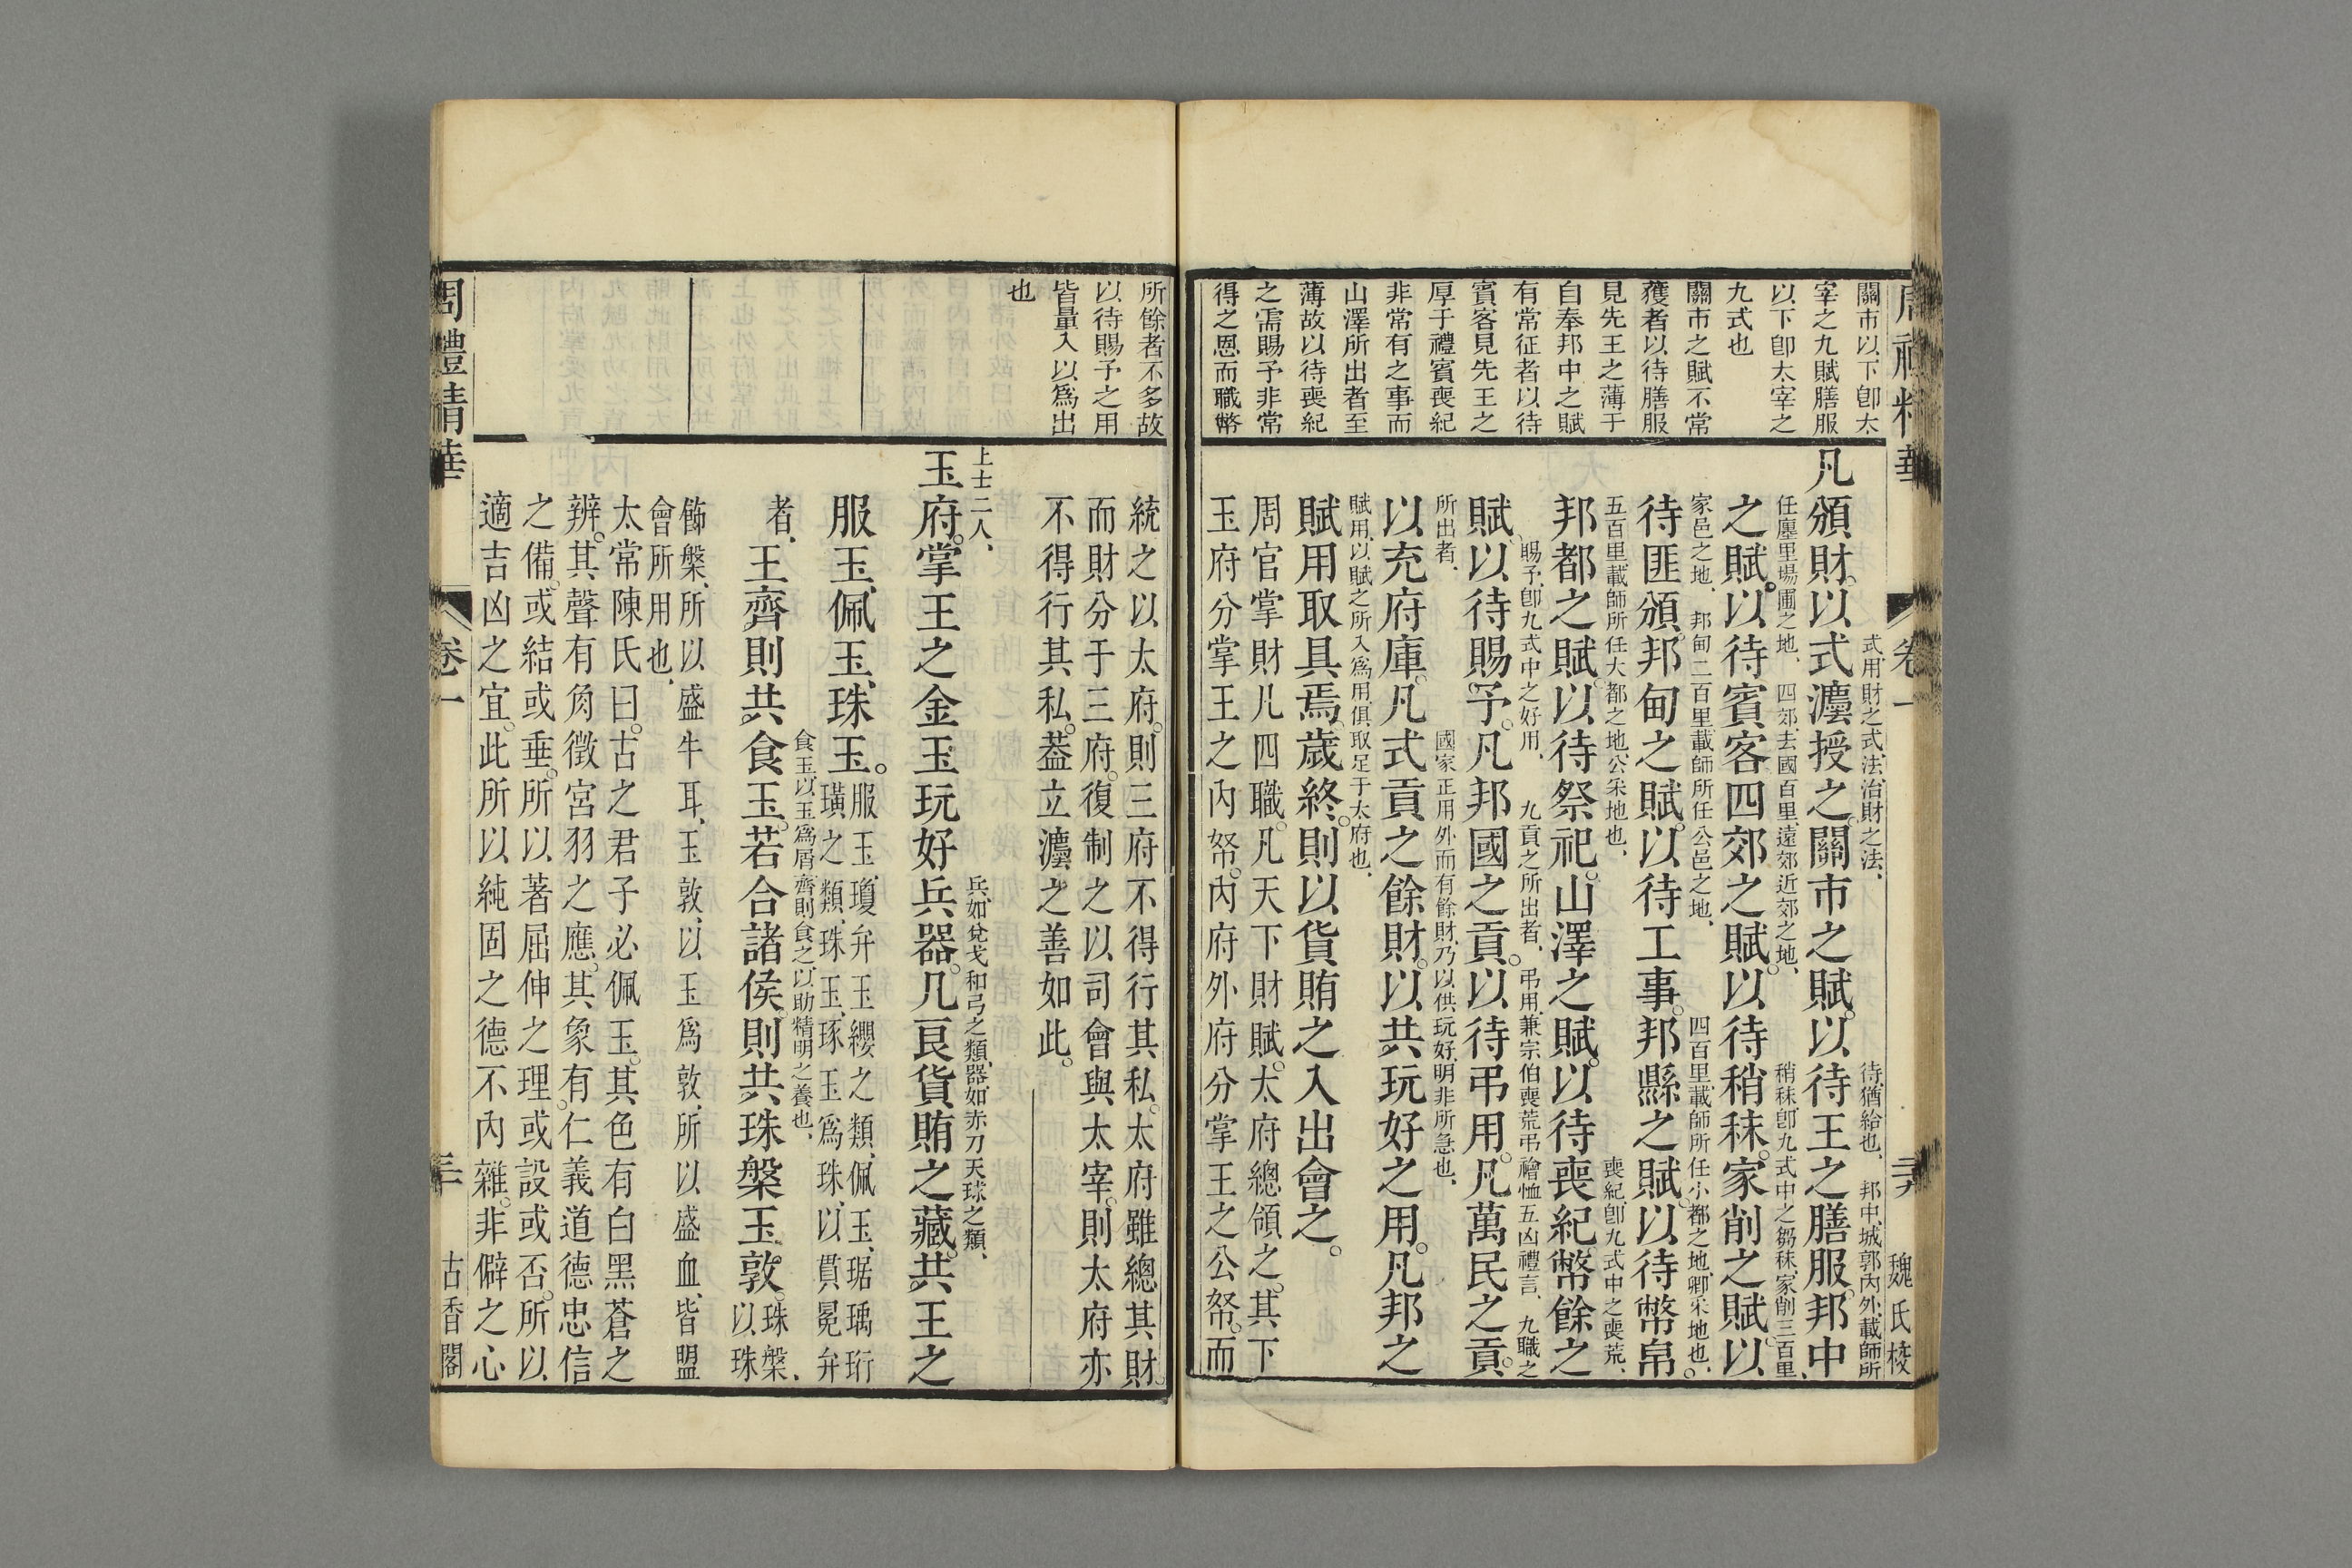 周禮精華
卷一
魏氏校
關市以下卽太
宰之九賦膳服
以下卽太宰之
九式也
關市之賦不常
獲者以待膳服
見先王之薄于
自奉邦中之賦
有常征者以待
賓客見先王之
厚于禮賓喪紀
非常有之事而
山澤所出者至
薄故以待喪紀
之需賜予非常
得之恩而職幣
式用財之式法治財之法、
待猶給也、
邦中城郭內外載師所
凡頒財以式灋授之關市之賦以待王之膳服邦中
任廛里場圃之地、
四郊去國百里遠郊近郊之地、
稍秣卽九式中之芻秣家削三百里、
之賦以待賓客四郊之賦以待稍秣家削之賦以
家邑之地、
邦甸二百里載師所任公邑之地、
四百里載師所任小都之地卿采地也、
待匪頒邦甸之賦以待工事邦縣之賦以待幣帛
五百里載師所任大都之地公采地也、
喪紀卽九式中之喪荒、
邦都之賦以待祭祀山澤之賦以待喪紀幣餘之
賜予卽九式中之好用、
九貢之所出者、
弔用兼宗伯喪荒弔禬恤五凶禮言、
九職之
賦以待賜予凡邦國之貢以待弔用凡萬民之貢
所出者、
國家正用外而有餘財乃以供玩好明非所急也、
以充府庫凡式貢之餘財以共玩好之用凡邦之
賦用以賦之所入為用俱取足于太府也、
賦用取具焉歲終則以貨賄之入出會之。
周官掌財凡四職凡天下財賦太府總領之其下
玉府分掌王之內帑內府外府分掌王之公帑而
所餘者不多故
以待賜予之用
皆量入以為出
也
統之以太府則三府不得行其私太府雖總其財
而財分于三府復制之以司會與太宰則太府亦
不得行其私葢立灋之善如此。
上士二人、
兵如兌戈和弓之類器如赤刀天球之類、
玉府掌王之金玉玩好兵器凡良貨賄之藏共王之
服玉佩玉珠玉。服玉瓊弁玉纓之類佩玉琚瑀珩
璜之類珠玉琢玉為珠以貫冕弁
者、
食玉以玉為屑齊則食之以助精明之養也、
王齊則共食玉若合諸侯則共珠槃玉敦。珠槃、
以珠
飾槃所以盛牛耳玉敦以玉為敦所以盛血皆盟
會所用也、
太常陳氏曰古之君子必佩玉其色有白黑蒼之
辨其聲有角徵宮羽之應其象有仁義道德忠信
之備或結或垂所以著屈伸之理或設或否所以
適吉凶之宜此所以純固之德不內雜非僻之心
周禮精華
卷一
古香閣